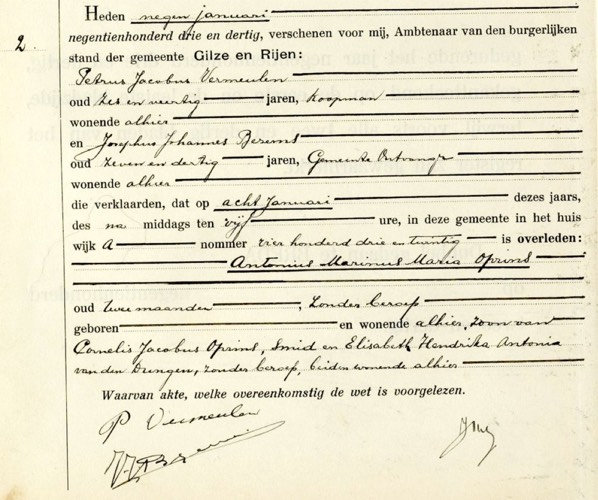 2.
Heden negen januari
negentienhonderd drie en dertig, verschenen voor mij, Ambtenaar van den burgerlijken
stand der gemeente Gilze en Rijen:
Petrus Jacobus Vermeulen
oud zes en veertig jaren, koopman
wonende alhier
en Josephus Johannes
oud zeven en dertig jaren, Gemeente Ontvanger
wonende alhier
die verklaarden, dat op acht Januari dezes jaars,
des na middags ten vijf ure, in deze gemeente in het huis
wijk A nommer vier honderd drie en twintig is overleden:
Antonius Marinus Maria Oprins
oud twee maanden, zonder beroep
geboren en wonende alhier, zoon van
Cornelis Jacobus Oprins, Smid en Elisabeth Hendrika Antonia
van den Dungen, zonder beroep, beiden wonende alhier
Waarvan akte, welke overeenkomstig de wet is voorgelezen.
P Vermeulen